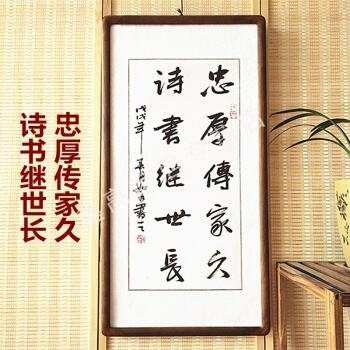 忠厚传家久
诗书继世长
忠厚傳家久
诗書继世長
戊戌年